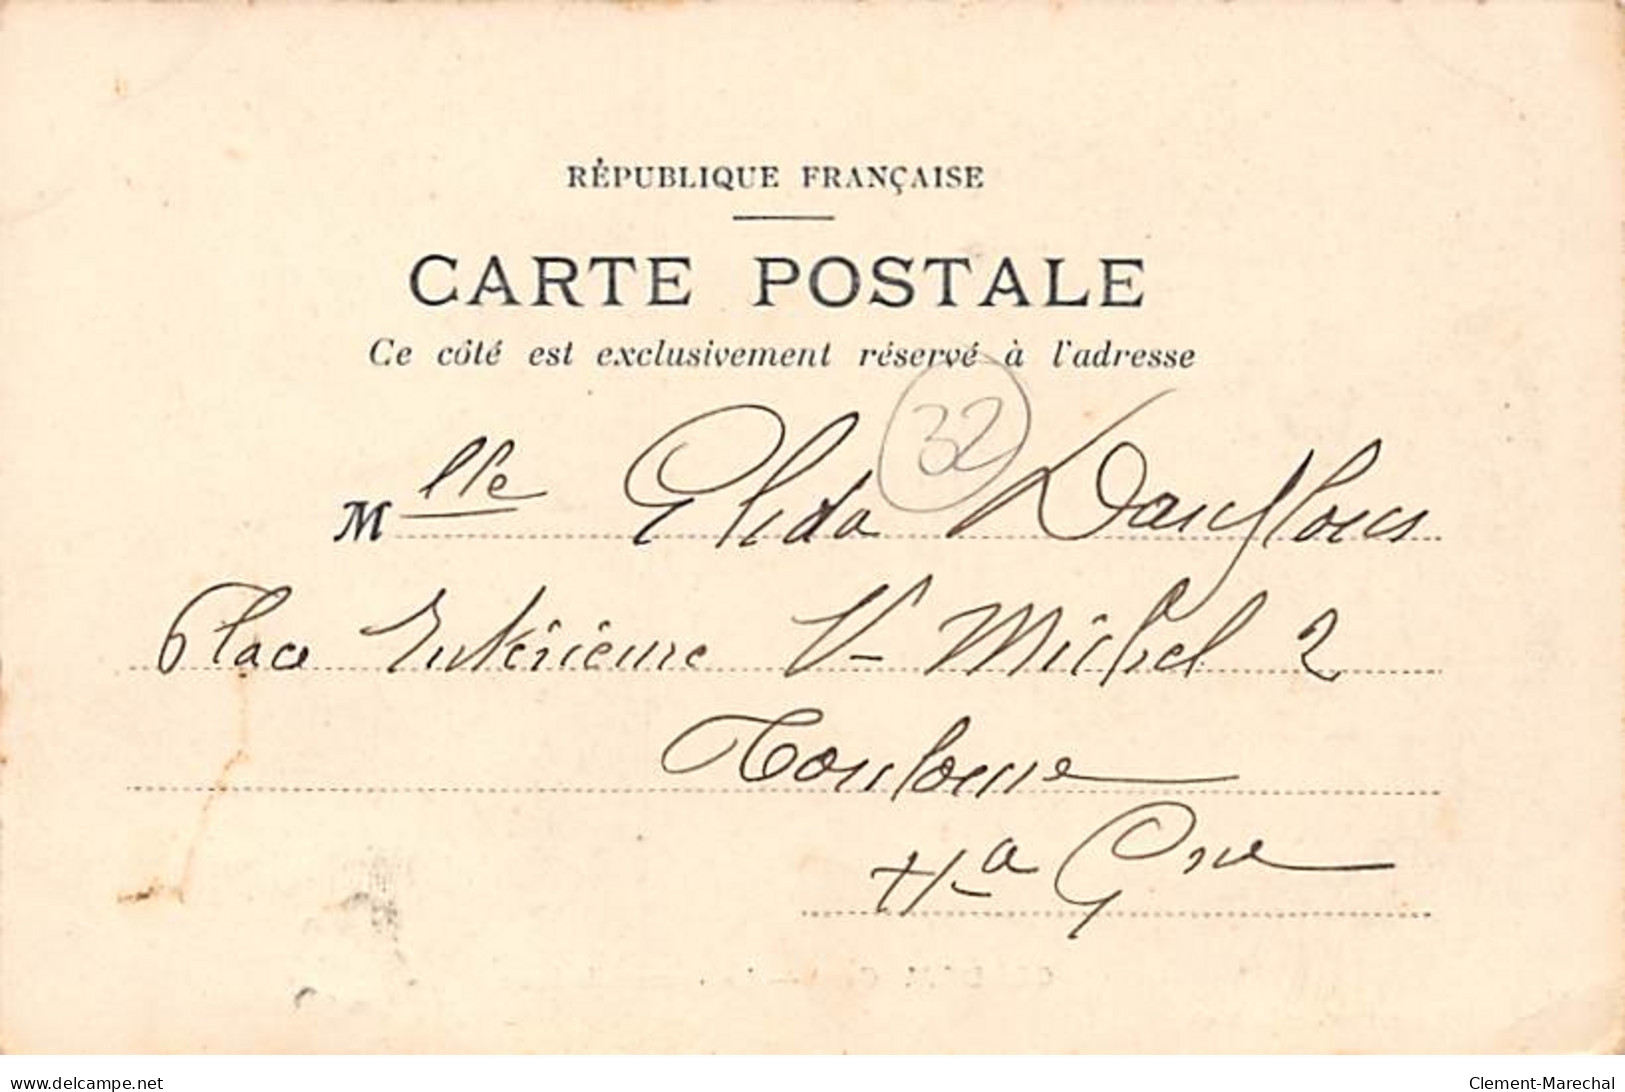 RÉPUBLIQUE FRANÇAISE
CARTE POSTALE
Ce côté est exclusivement réservé à l'adresse
32
Mlle Elida Dauflous
Place Intérieure St Michel 2
Toulouse
Hte Gne
delcampe.net
Clement-Marechal